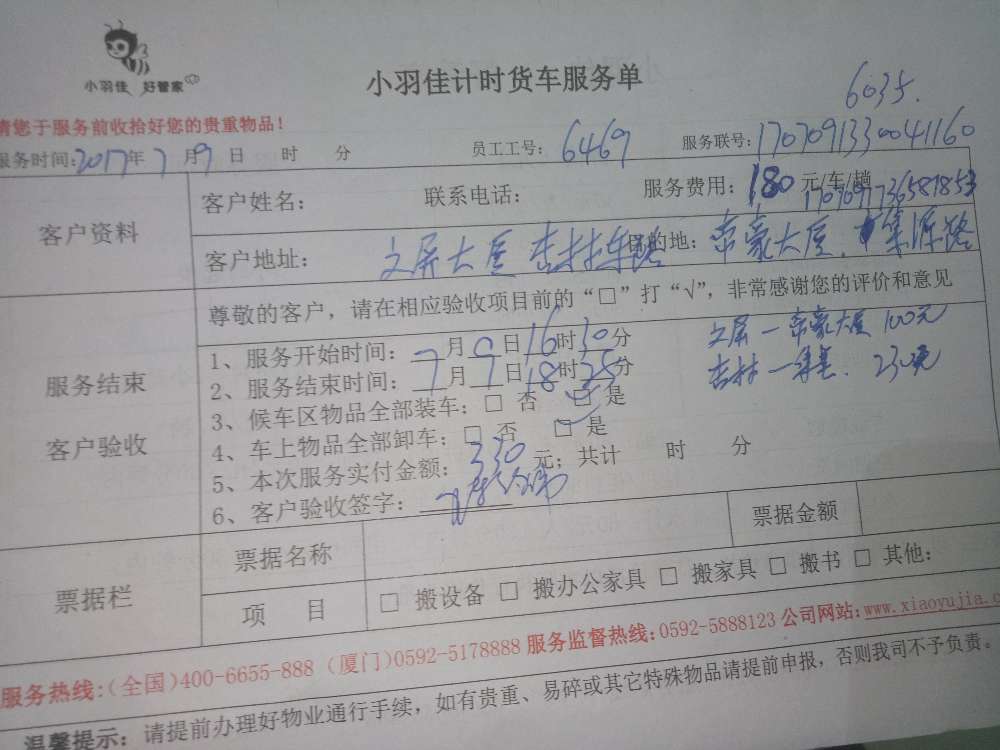 小羽佳 好管家
小羽佳计时货车服务单
6035.
请您于服务前收拾好您的贵重物品！
服务时间：2017年7月9日 时 分 员工工号：6469 服务联号：1707091330041160
客户资料
客户姓名： 联系电话： 服务费用：180元/车/趟
客户地址：文屏大厦 杏林 目的地：帝豪大厦.集源路
服务结束
客户验收
尊敬的客户，请在相应验收项目前的“□”打“√”，非常感谢您的评价和意见
1、服务开始时间：7月9日16时30分
2、服务结束时间：7月9日18时25分
3、候车区物品全部装车：□ 否 □ 是
4、车上物品全部卸车：□ 否 □ 是
5、本次服务实付金额：330元；共计 时 分
6、客户验收签字：
文屏一帝豪大厦 100元
杏林一集美. 230元
票据栏
票据名称 票据金额
项 目 □ 搬设备 □ 搬办公家具 □ 搬家具 □ 搬书 □ 其他：
服务热线：（全国）400-6655-888（厦门）0592-5178888 服务监督热线：0592-5888123 公司网站：www.xiaoyujia.c
温馨提示：请提前办理好物业通行手续，如有贵重、易碎或其它特殊物品请提前申报，否则我司不予负责。